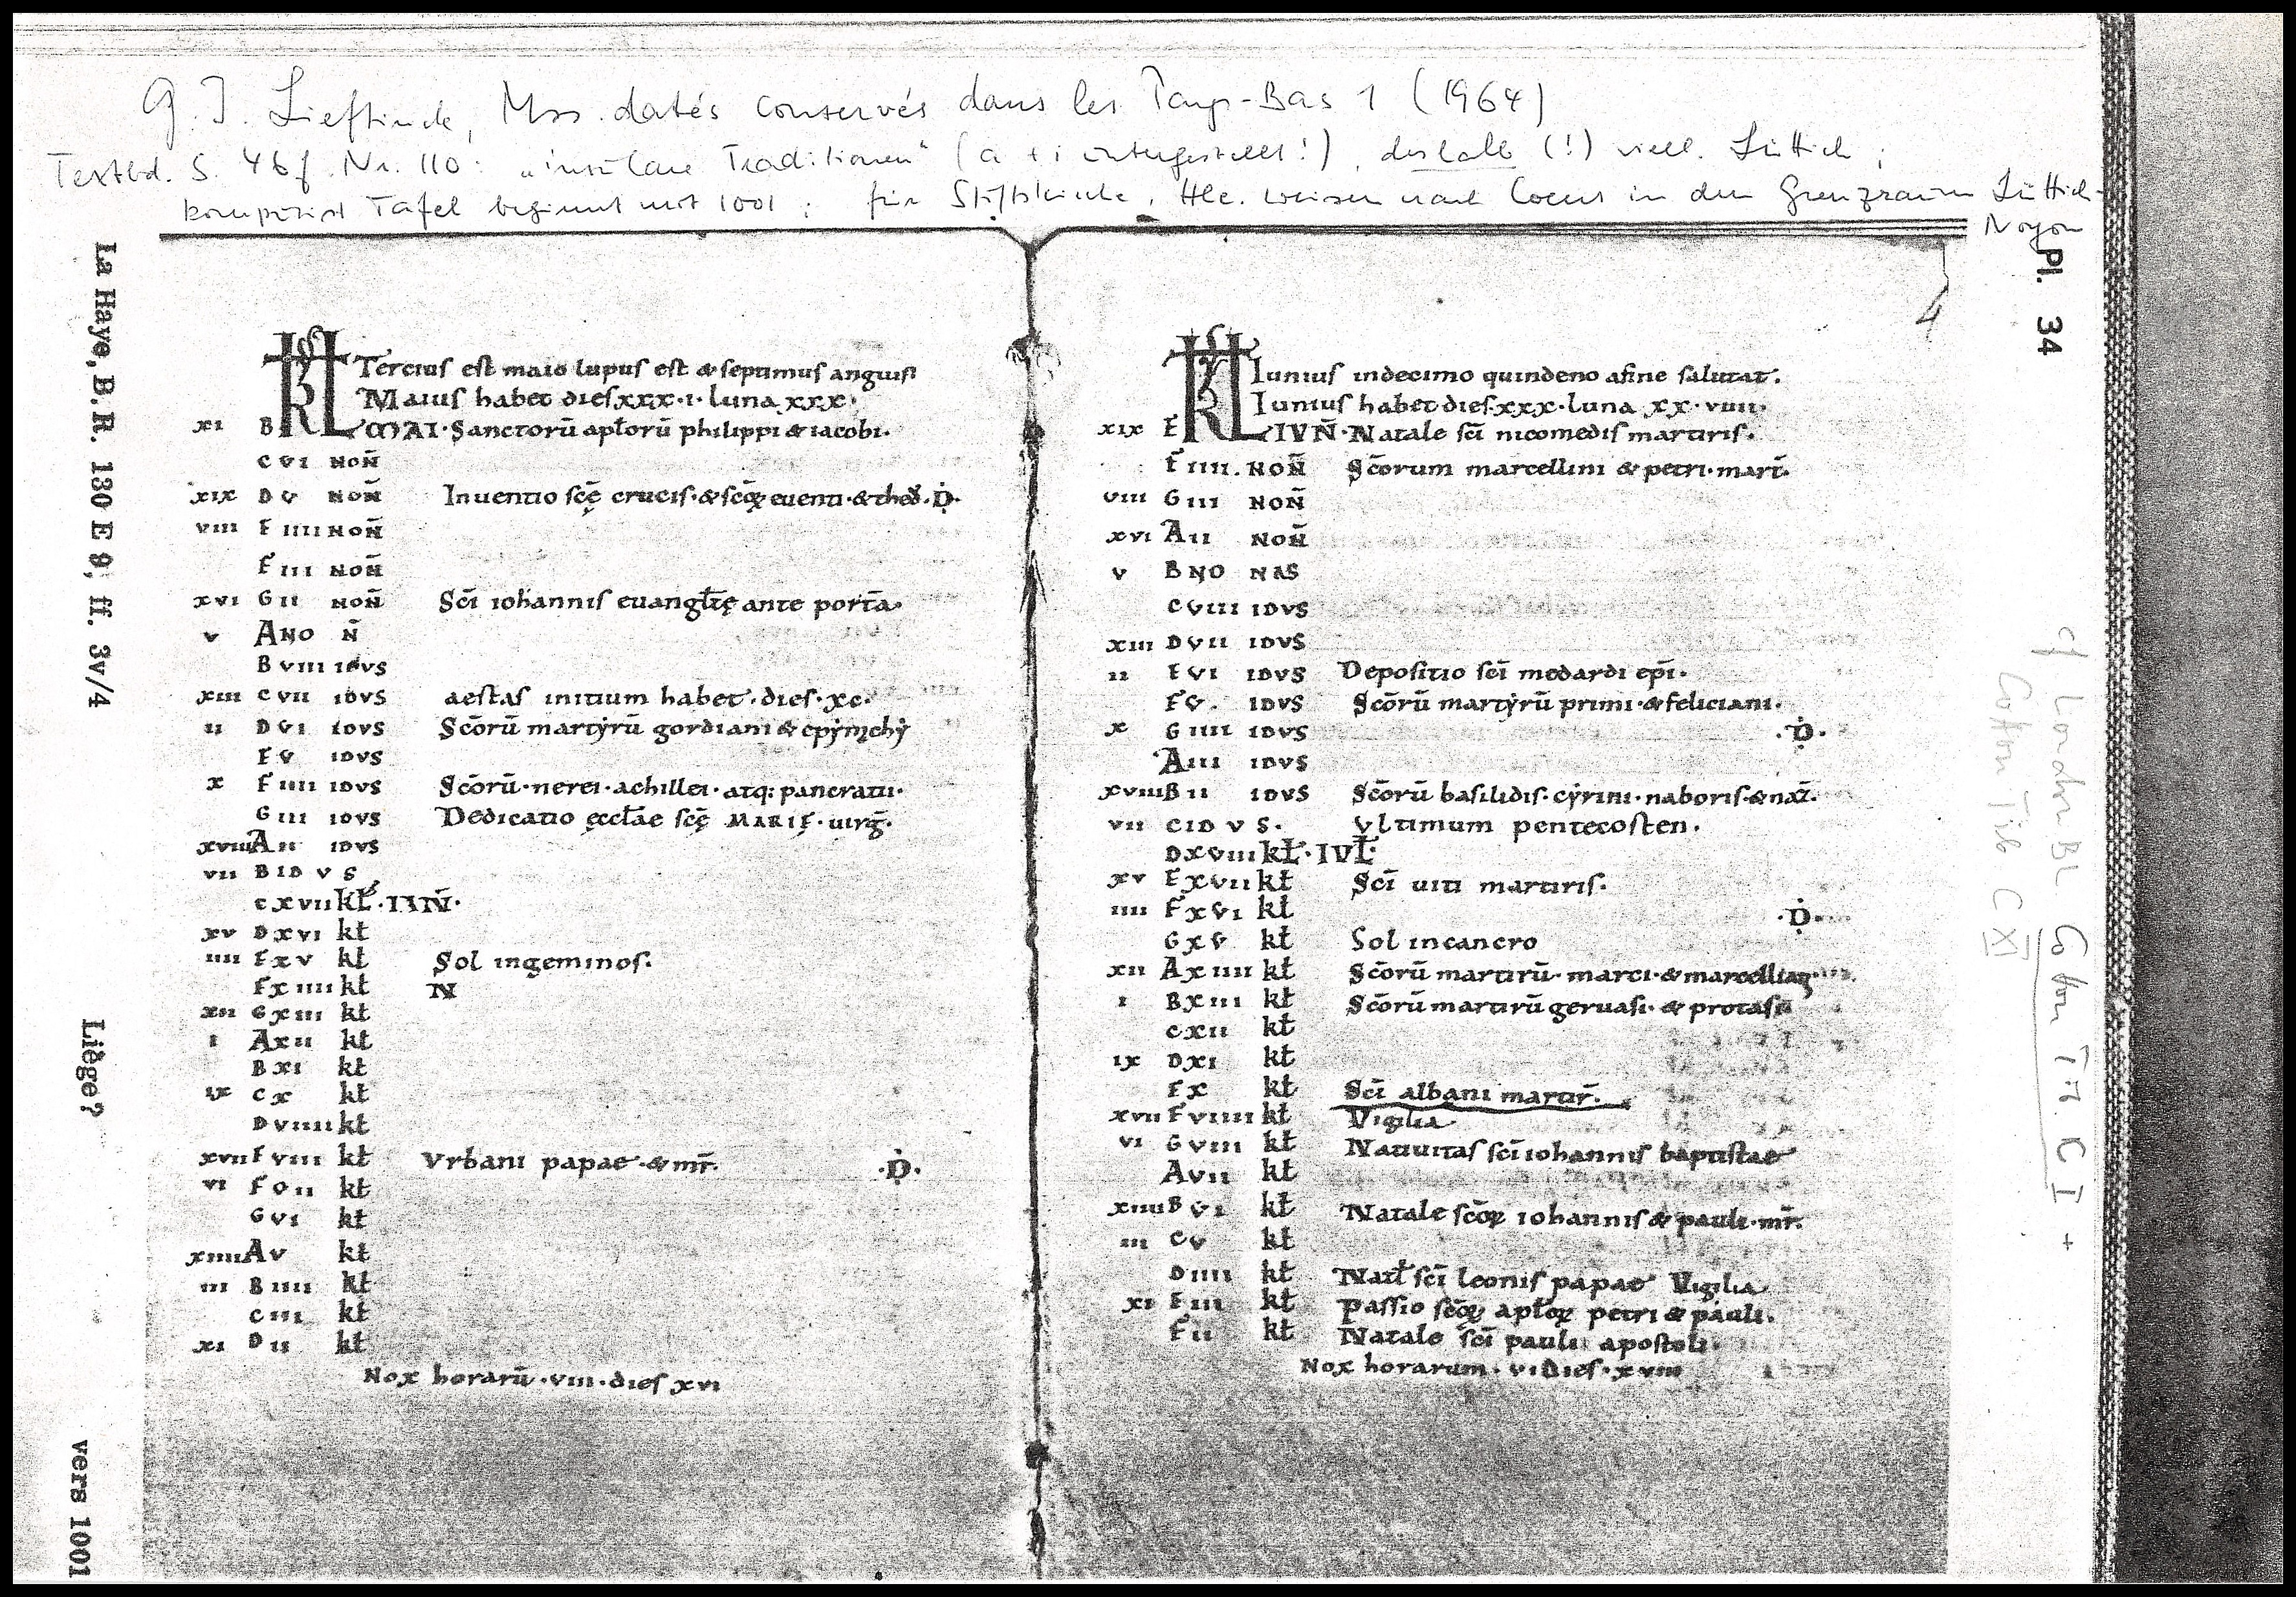 G. I. Lieftinck, Mss. datés conservés dans les Pays-Bas 1 (1964)
Textbd. S. 46f. Nr. 110: „insulare Traditionen“ (a + i untergestellt!), deshalb (!) viell. Lüttich;
komputist. Tafel beginnt mit 1001; für Stiftskirche. Hle. weisen nach in den Grenzraum Lüttich-
Noyon
La Haye, B.R. 130 E 9, ff. 3v/4
Liège?
vers 1001
KL Tercius est maio lupus est & septimus anguis
Maius habet dies xxx·i· luna xxx·
xi B MAI· Sanctorū apłorū philippi & iacobi·
c vi NOÑ
xix D v NOÑ Inuentio scę̄ crucis·&scōꝝ euenti·&theō·D·
viii E iiii NOÑ
F iii NOÑ
xvi G ii NOÑ Scī iohannis euangłię ante portā·
v A NO Ñ
B viii IDVS
xiii c vii IDVS aestas initium habet·dies·xc·
ii D vi IDVS Scōrū martẏrū gordiani & epẏmchẏ
E v IDVS
x F iiii IDVS Scōrū·nerei·achillei·atq: pancratii·
G iii IDVS Dedicatio ęcctāe scę̄ MARIĘ·uirḡ·
xviii A ii IDVS
vii B ID V S
c xvii kł·IVÑ·
xv D xvi kł
iiii E xv kł Sol ingeminos·
F x iiii kł N
xii G xiii kł
i A xii kł
B xi kł
ix c x kł
D viiii kł
xvii E viii kł Vrbani papae·&mr̄· ·D·
vi F vii kł
G vi kł
xiiii A v kł
iii B iiii kł
c iii kł
xi D ii kł
Nox horarū·viii·dies xvi
4
KL Iunius indecimo quindeno afine salutat·
Iunius habet dies·xxx·luna xx·viiii·
xix E IVÑ·Natale scī nicomedis martiris·
F iiii· NOÑ Scōrum marcellini & petri·mart̄·
viii G iii NOÑ
xvi A ii NOÑ
v B NO NAS
c viii IDVS
xiii D vii IDVS
ii E vi IDVS Depositio scī medardi ep̄i·
F v· IDVS Scōrū martẏrū primi·&feliciani·
x G iiii IDVS ·D·
A iii IDVS
xviii B ii IDVS Scōrū basilidis·cẏrini·naboris·&naz̄·
vii c ID V S· Vltimum pentecosten·
D xviii kł·IVŁ·
xv E xvii kł Scī uiti martiris·
iiii F xvi kł ·D·
G xv kł Sol incancro
xii A x iiii kł Scōrū martirū·marci·&marcelliaꝝ·
i B xiii kł Scōrū martirū geruasi·& protasii
c xii kł
ix D xi kł
E x kł Scī albani martir̄·
xvii F viiii kł Vigilia
vi G viii kł Natiuitas scī iohannis baptistae
A vii kł
xiiii B vi kł Natale scōꝝ iohannis & pauli·mr̄·
iii c v kł
D iiii kł Natł scī leonis papae Vigilia
xi E iii kł Passio scōꝝ apłoꝝ petri & pauli·
F ii kł Natale scī pauli apostoli·
Nox horarum·vi dies·xviii
Pl. 34
cf London BL Cotton Tib. C I +
Cotton Tib C XI